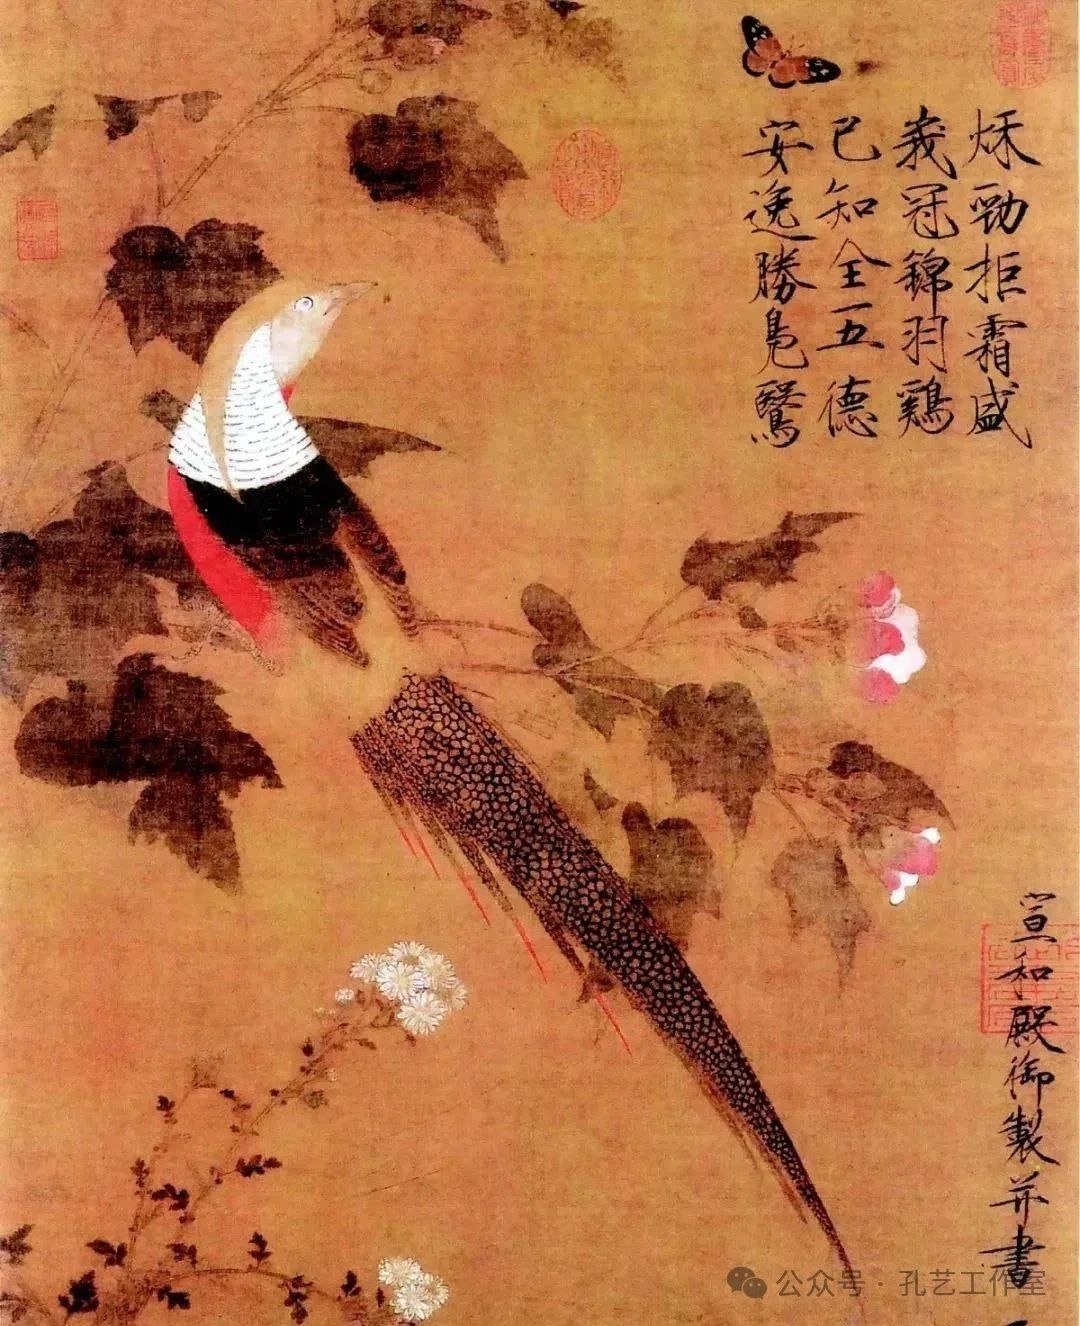 秌勁拒霜盛
峩冠錦羽鷄
已知全五德
安逸勝鳧鷖
宣和殿御製并書
公众号 · 孔艺工作室